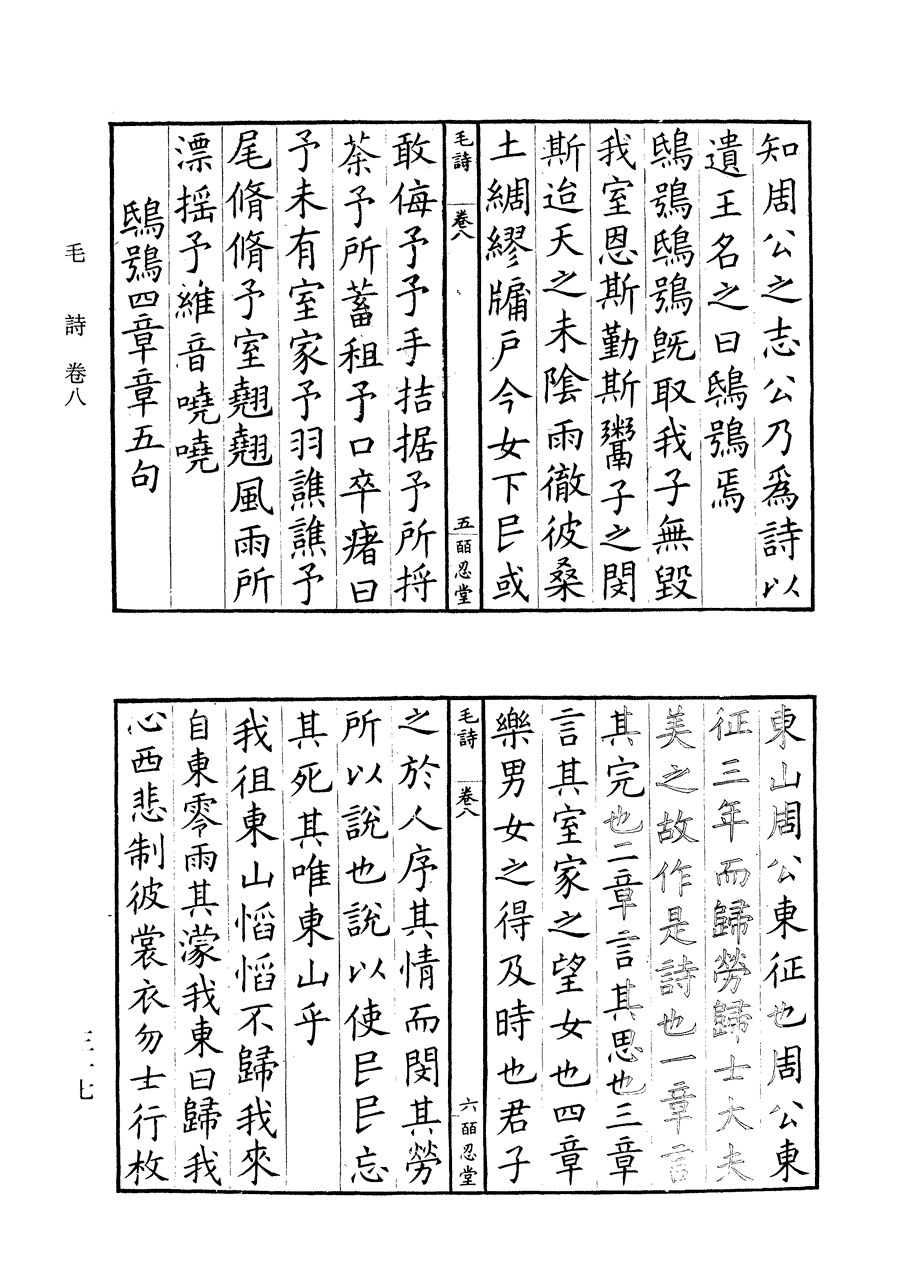 知周公之志公乃爲詩以
遺王名之曰鴟鴞焉
鴟鴞鴟鴞既取我子無毀
我室恩斯勤斯鬻子之閔
斯迨天之未陰雨徹彼桑
土綢繆牖戶今女下民或
毛詩 卷八 五 皕忍堂
敢侮予予手拮据予所捋
荼予所蓄租予口卒瘏曰
予未有室家予羽譙譙予
尾脩脩予室翹翹風雨所
漂揺予維音嘵嘵
鴟鴞四章章五句
東山周公東征也周公東
征三年而歸勞歸士大夫
美之故作是詩也一章言
其完也二章言其思也三章
言其室家之望女也四章
樂男女之得及時也君子
毛詩 卷八 六 皕忍堂
之於人序其情而閔其勞
所以說也說以使民民忘
其死其唯東山乎
我徂東山慆慆不歸我來
自東零雨其濛我東曰歸我
心西悲制彼裳衣勿士行枚
毛詩 卷八
三一七